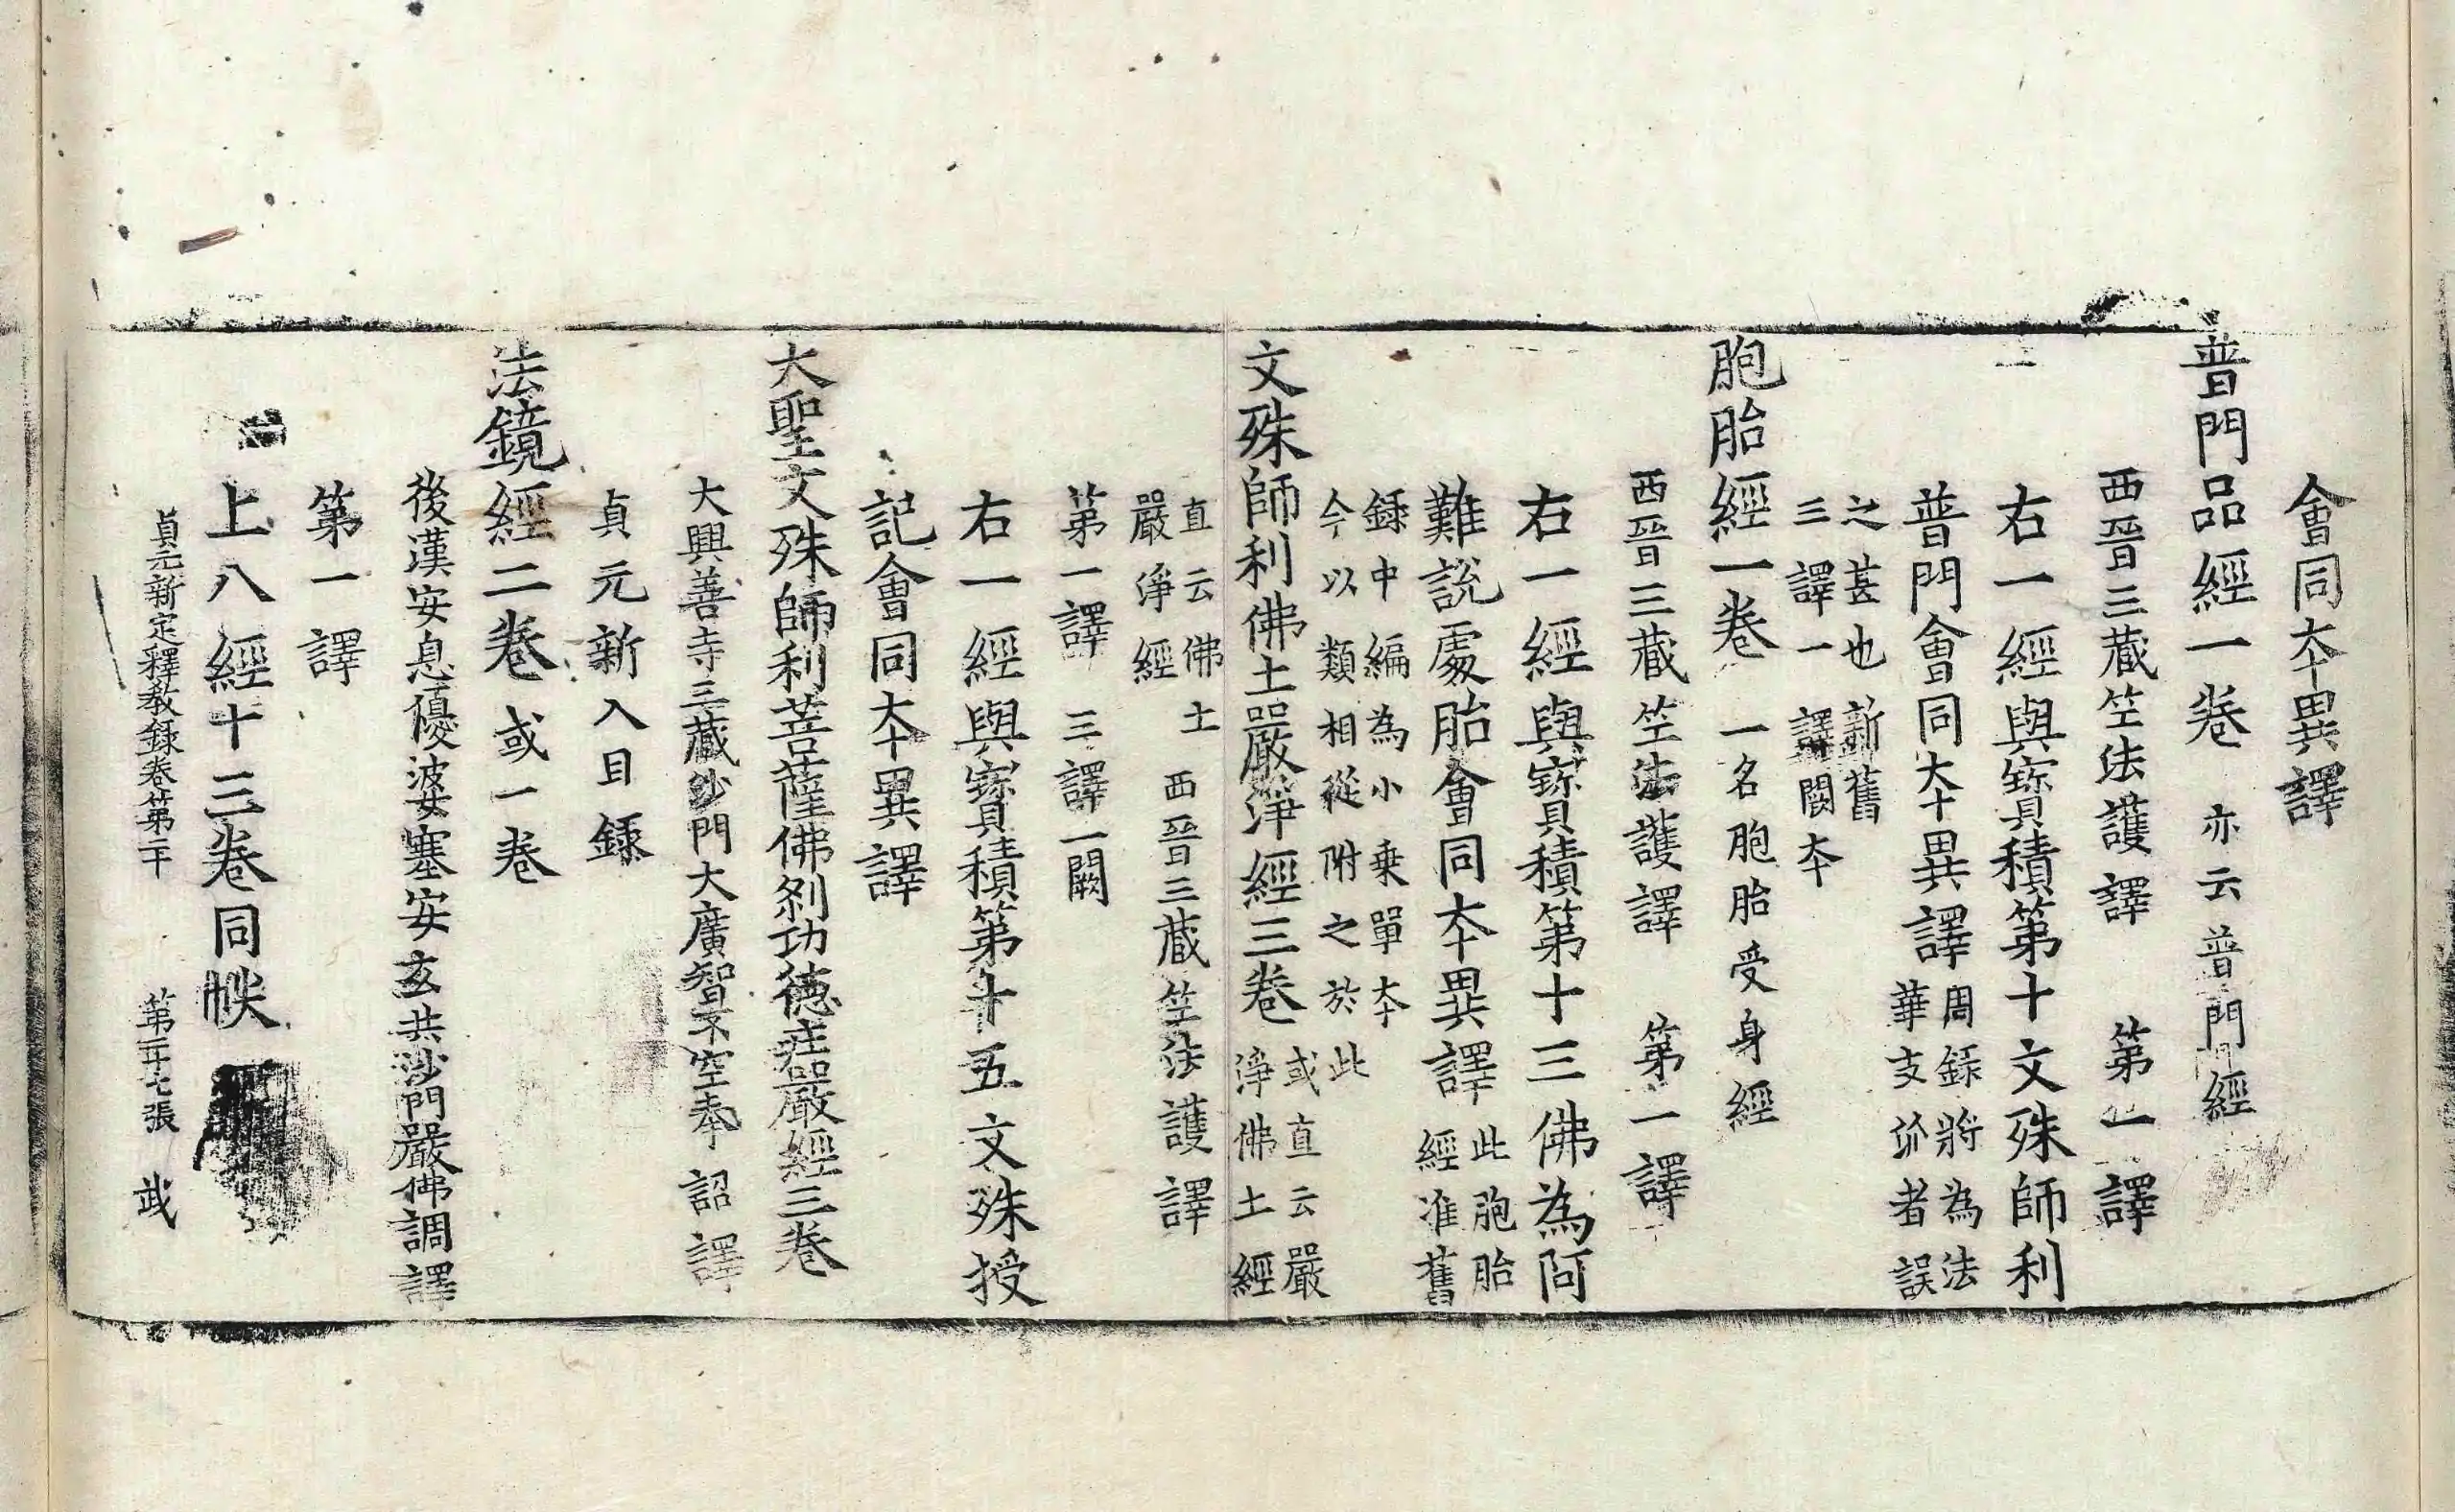 會同本異譯
普門品經一卷 亦云普門經
西晉三藏竺法護譯 第一譯
右一經與寶積第十文殊師利
普門會同本異譯 周錄將為法
華支流者誤
之甚也新舊
三譯一譯闕本
胞胎經一卷 一名胞胎受身經
西晉三藏竺法護譯 第一譯
右一經與寶積第十三佛為阿
難說處胎會同本異譯 此胞胎
經准舊
錄中編為小乘單本
今以類相從附之於此
文殊師利佛土嚴淨經三卷 或直云嚴
淨佛土經
直云佛土
嚴淨經 西晉三藏竺法護譯
第一譯 三譯一闕
右一經與寶積第十五文殊授
記會同本異譯
大聖文殊師利菩薩佛剎功德莊嚴經三卷
大興善寺三藏沙門大廣智不空奉 詔譯
貞元新入目錄
法鏡經二卷 或一卷
後漢安息優婆塞安玄共沙門嚴佛調譯
第一譯
上八經十三卷同帙
貞元新定釋教錄卷第二十 第二十七張 武